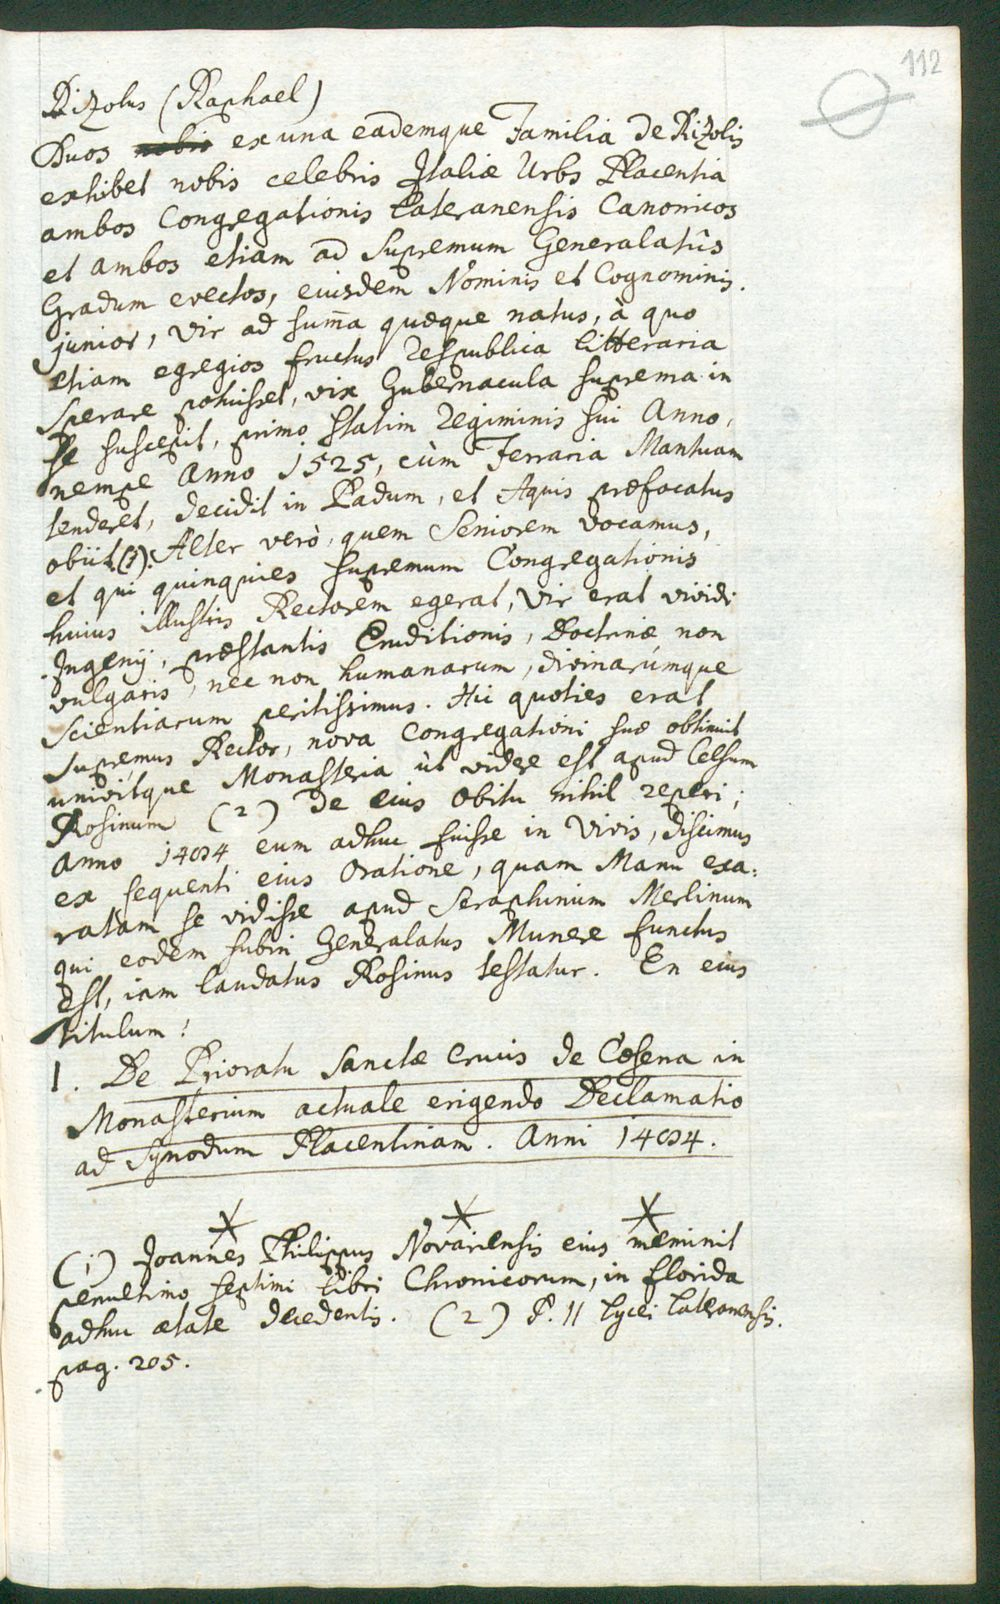 112
Rizolus (Raphael)
Duos ex una eademque Familia de Rizolis
exhibet nobis celebris Italiæ Urbs Placentia
ambos Congregationis Lateranensis Canonicos
et ambos etiam ad Supremum Generalatûs
Gradum evectos, eiusdem Nominis et Cognominis.
junior, vir ad sum̃a quæque natus, à quo
etiam egregios fructus Respublica Litteraria
sperare potuisset, vix Gubernacula suprema in
se suscepit, primo statim Regiminis sui Anno,
nempe Anno 1525, cùm Ferraria Mantuam
tenderet, decidit in Padum, et Aquis præfocatus
obiit (1). Alter verò, quem Seniorem vocamus,
et qui quinquies supremum Congregationis
huius illustris Rectorem egerat, Vir erat vividi
Ingenij, præstantis Eruditionis, Doctrinæ non
vulgaris, nec non humanarum, divinarúmque
Scientiarum peritissimus. Hic quoties erat
Supremus Rector, nova Congregationi suæ obtinuit
univitque Monasteria ùt videre est apud Celsum
Rosinum (2) De eius Obitu nihil reperi;
Anno 1494 eum adhuc fuisse in Vivis, discimus
ex sequenti eius Oratione, quam Manu exa:
ratam se vidisse apud Seraphinum Merlinum
qui eodem subin Generalatus Munere functus
est, iam laudatus Rosinus testatur. En eius
titulum:
1. De Prioratu Sanctæ Crucis de Cæsena in
Monasterium actuale erigendo Declamatio
ad Synodum Placentinam. Anni 1494.
(1) Joannes Philippus Novariensis eius meminit
penultimo septimi libri Chronicorum, in florida
adhuc ætate decedentis. (2) P. II Lycei Lateranensis.
pag. 205.